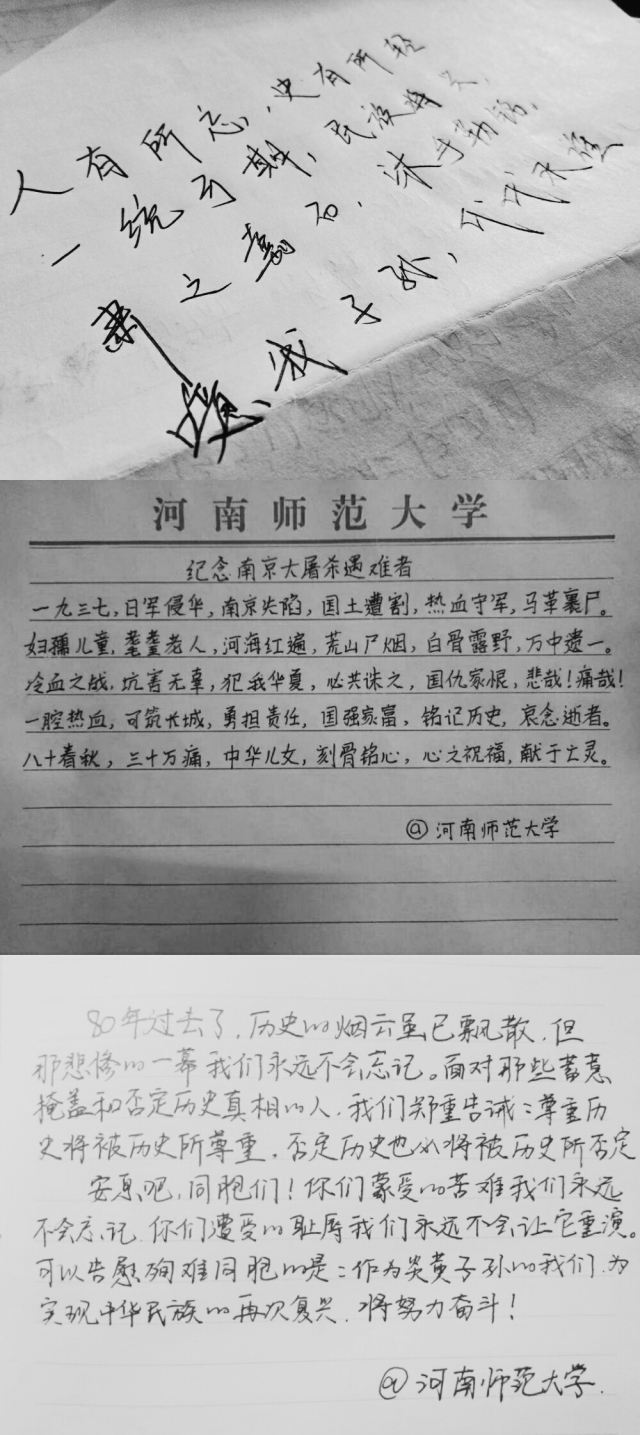 人有所忘，史有所轻
一统可期，民族将兴，
肃之嘉石，沐手勒铭，
我子孙，代代永

河南师范大学
纪念南京大屠杀遇难者
一九三七，日军侵华，南京失陷，国土遭割，热血守军，马革裹尸。
妇孺儿童，耄耋老人，河海红遍，荒山尸烟，白骨露野，万中遗一。
冷血之战，坑害无辜，犯我华夏，必共诛之，国仇家恨，悲哉！痛哉！
一腔热血，可筑长城，勇担责任，国强家富，铭记历史，哀念逝者。
八十春秋，三十万痛，中华儿女，刻骨铭心，心之祝福，献于亡灵。
@河南师范大学

80年过去了，历史的烟云虽已飘散，但
那悲惨的一幕我们永远不会忘记。面对那些蓄意
掩盖和否定历史真相的人，我们郑重告诫：尊重历
史将被历史所尊重，否定历史也必将被历史所否定
安息吧，同胞们！你们蒙受的苦难我们永远
不会忘记，你们遭受的耻辱我们永远不会让它重演。
可以告慰殉难同胞的是：作为炎黄子孙的我们，为
实现中华民族的再次复兴，将努力奋斗！
@河南师范大学.